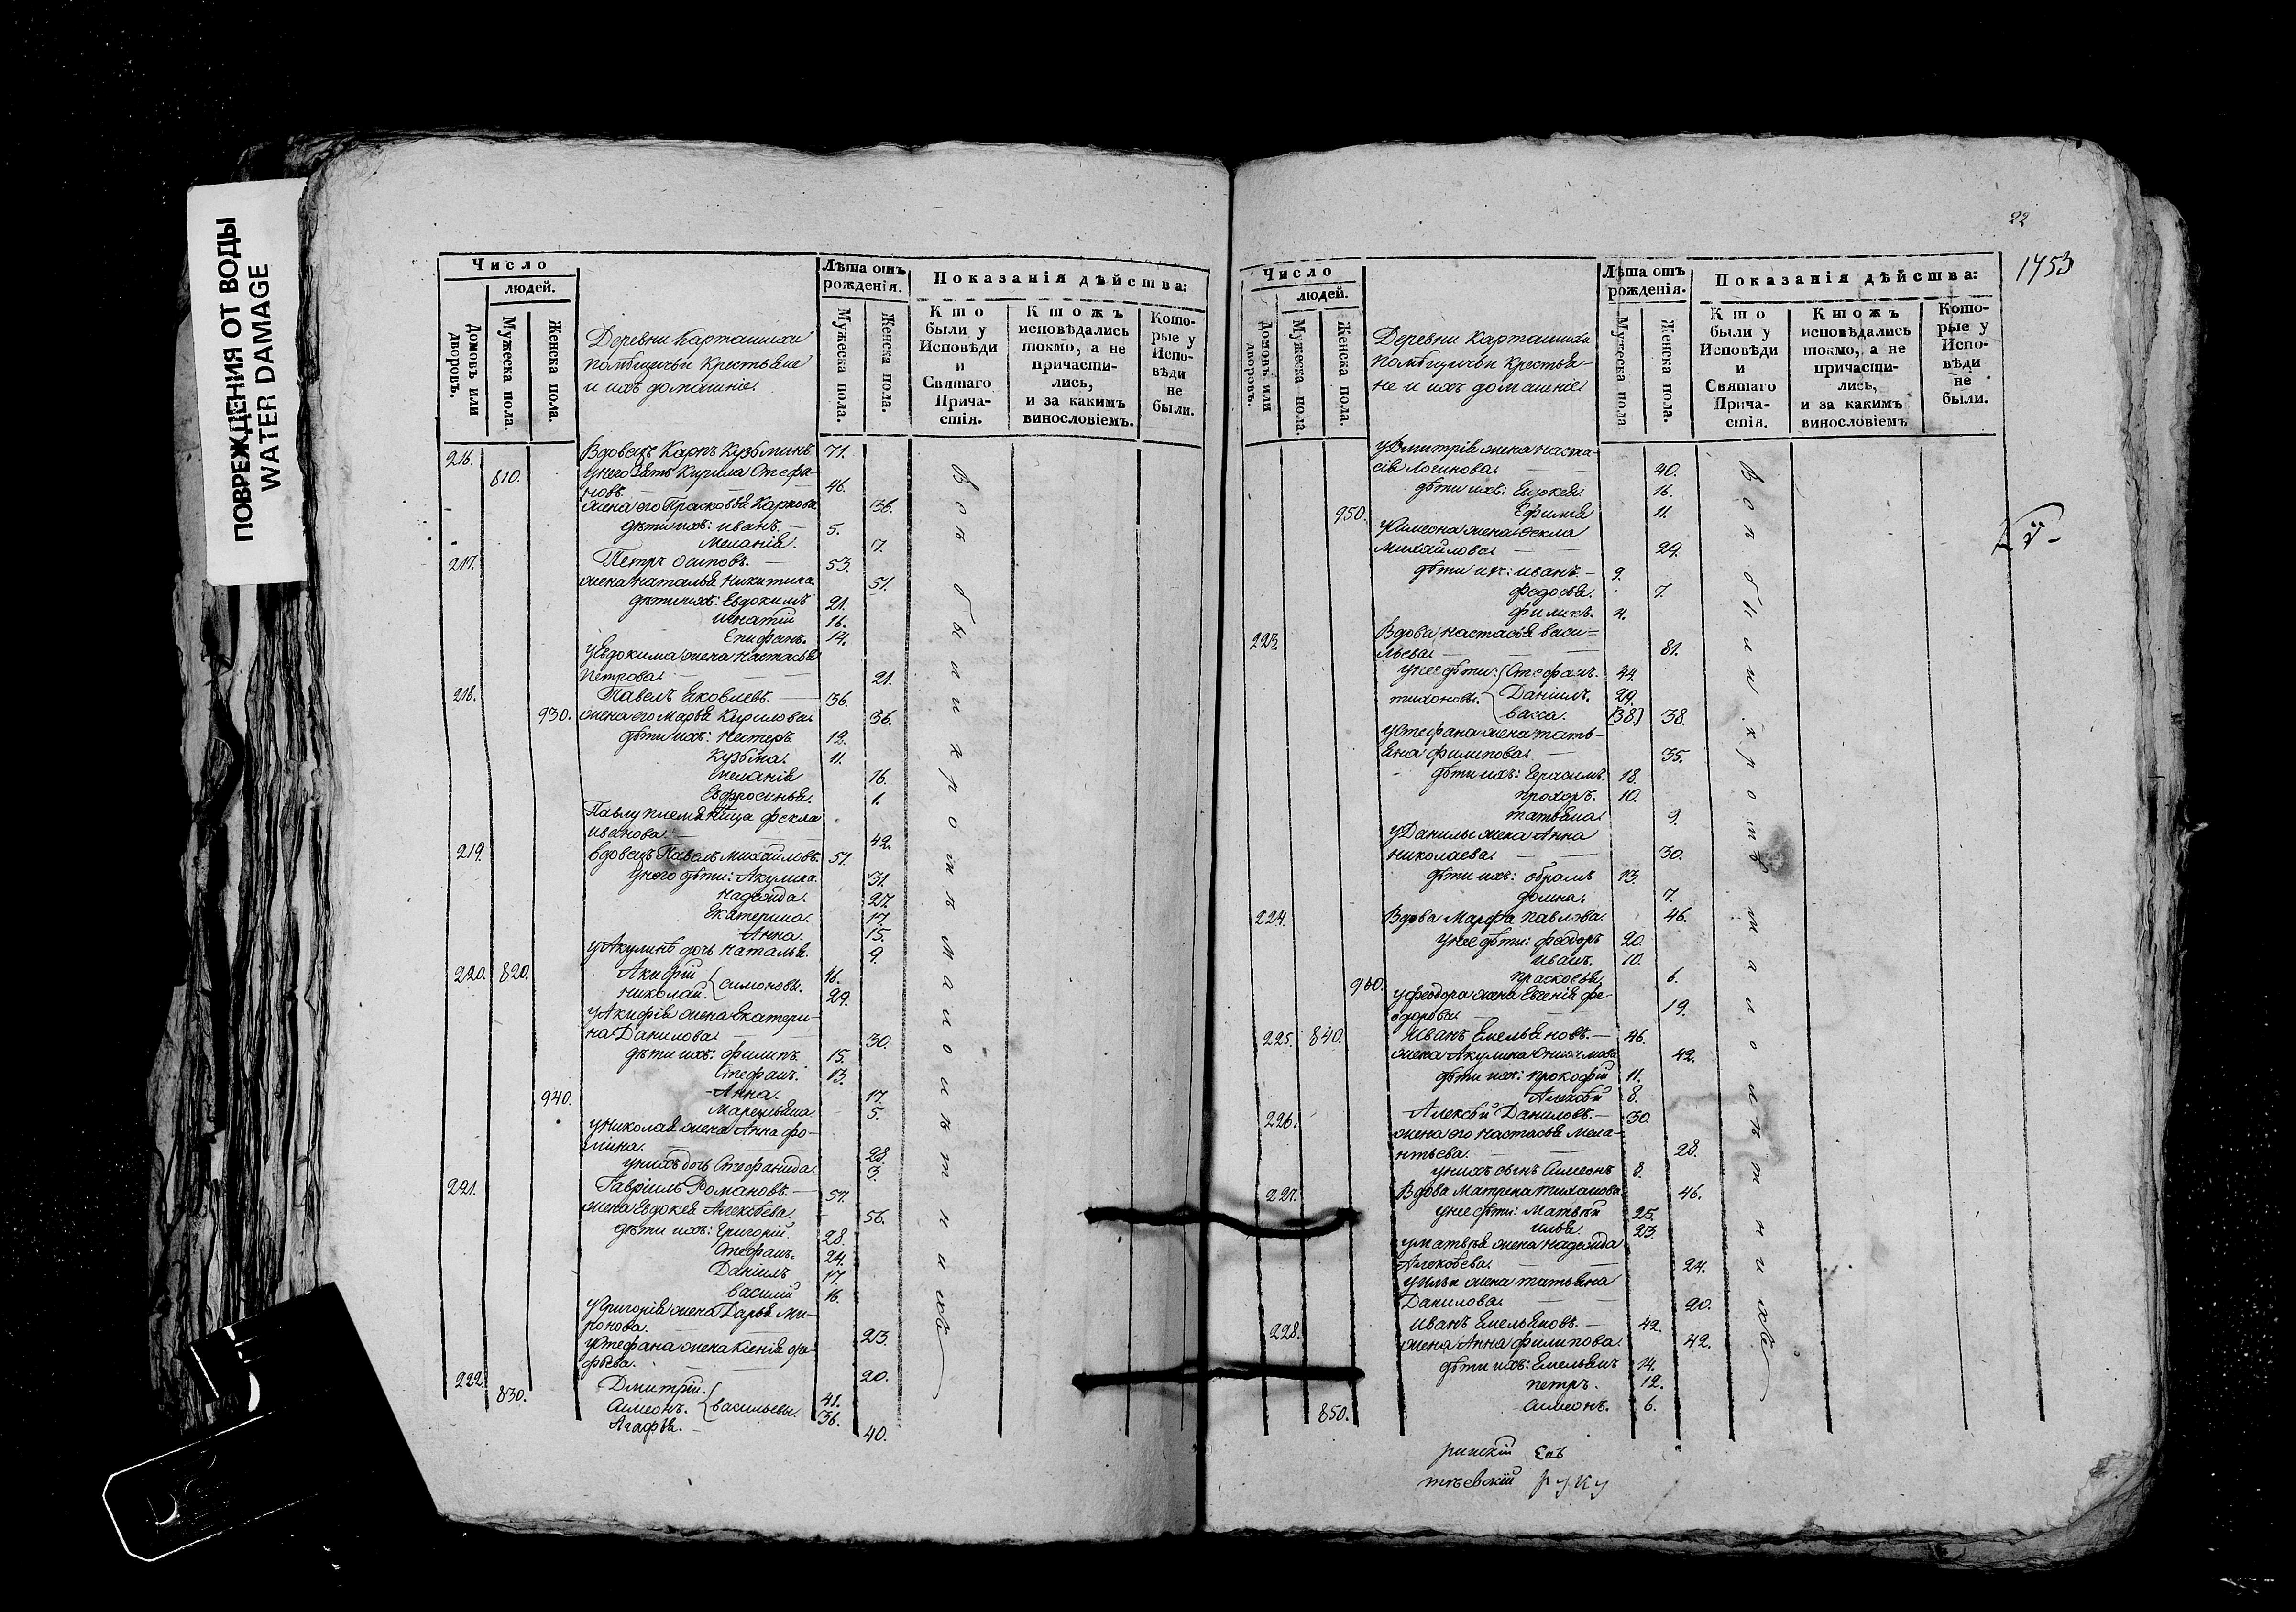 ПОВРЕЖДЕНИЯ ОТ ВОДЫ
WATER DAMAGE
Число
людей.
Домовъ или дворовъ.
Мужеска пола.
Женска пола.
Деревни Карташихи
помѣщичьи Крестьяне
и ихъ домашніе
Лѣта отъ
рожденія.
Мужеска пола.
Женска пола.
Показанія дѣйства:
Кто
были у
Исповѣди
и
Святаго
Прича-
стія.
Ктожъ
исповѣдались
токмо, а не
причасти-
лись,
и за какимъ
винословіемъ.
Кото-
рые у
Испо-
вѣди
не
были.
216. Вдовецъ Карпъ Кузьминъ 71.
810. у него Зять Кирила Стефа-
новъ 46.
жена его Прасковья Карпова 36.
дѣти ихъ: Иванъ. 5.
Меланія. 7.
217. Петръ Осиповъ. 53.
жена Наталья Никитина 51.
дѣти ихъ: Евдокимъ 21.
Игнатій 16.
Епифанъ. 14.
у Евдокима жена Настасья
Петрова. 21.
218. Павелъ Яковлевъ. 36.
930. жена его Марья Кирилова 36.
дѣти ихъ: Нестеръ 12.
Кузьма. 11.
Меланія 16.
Евфросинья. 1.
Павлу племяница Фекла
Иванова. 42.
219. Вдовецъ Павелъ Михайловъ. 51.
у него дѣти: Акулина 31.
Надежда. 27.
Екатерина. 17.
Анна. 15.
у Акулинѣ дочь Наталья. 9.
220. 820. Акифій 46.
Николай. Симоновы. 29.
у Акифія жена Екатери-
на Данилова 30.
дѣти ихъ: Филипъ 15.
Стефанъ. 13.
940. Анна. 17.
Маремьяна 5.
у Николая жена Анна Фо-
мина. 28.
у нихъ дочь Стефанида. 3.
221. Гавріилъ Романовъ. 57.
жена Евдокея Алексѣева. 56.
дѣти ихъ: Григорій. 28.
Стефанъ. 24.
Даніилъ 17.
Василій 16.
у Григорія жена Дарья Ми-
ронова. 23.
у Стефана жена Ксенія
20.
222. Дмитрій. 41.
830. Симеонъ. Васильевы. 36.
Агафья. 40.
Всѣ были и кромѣ малолѣтнихъ
22
1753
Число
людей.
Домовъ или дворовъ.
Мужеска пола.
Женска пола.
Деревни Карташихи
помѣщичьи Крестья-
не и ихъ домашніе
Лѣта отъ
рожденія.
Мужеска пола
Женска пола.
Показанія дѣйства:
Кто
были у
Исповѣди
и
Святаго
Прича-
стія.
Ктожъ
исповѣдались
токмо, а не
причасти-
лись,
и за какимъ
винословіемъ
Кото-
рые у
Испо-
вѣди
не
были.
у Дмитрія жена Наста-
сія Логинова 40.
дѣти ихъ: Евдокея 16.
950. Ефимія 11.
у Симеона жена Фекла
Михайлова 29.
дѣти ихъ: Иванъ. 9.
Федосья. 7.
Филипъ. 4.
223. Вдова Настасья Васи=
льева 81.
у нее дѣти: Стефанъ. 44.
Тихоновы. Даніилъ. 29.
Васса. (38.) 38.
у Стефана жена Тать-
яна Филипова. 35.
дѣти ихъ: Герасимъ. 18.
Прохоръ. 10.
Татьяна. 9.
у Данилы жена Анна
Николаева. 30.
дѣти ихъ: Абрамъ 13.
Домна. 7.
224. Вдова Марфа Павлова. 46.
у нее дѣти: Феодоръ 20.
Иванъ. 10.
960. Прасковья 6.
у Феодора жена Евгенія Фе-
одорова 19.
225. 840. Иванъ Емельяновъ. 46.
жена Акулина 42.
дѣти ихъ: Прокофій 11.
Алексѣй 8.
226. Алексѣй Даниловъ. 30.
жена его Настасья Мела-
нтьева. 28.
у нихъ сынъ Симеонъ 8.
227. Вдова Матрена Тиханова 46.
у нее дѣти: Матвѣй 25.
Илья. 23.
у Матвѣя жена Надежда
Алексѣева. 24.
у Ильи жена Татьяна
Данилова. 20.
228. Иванъ Емельяновъ. 42.
жена Анна Филипова. 42.
дѣти ихъ: Емельянъ 14.
Петръ. 12.
850. Симеонъ. 6.
руку